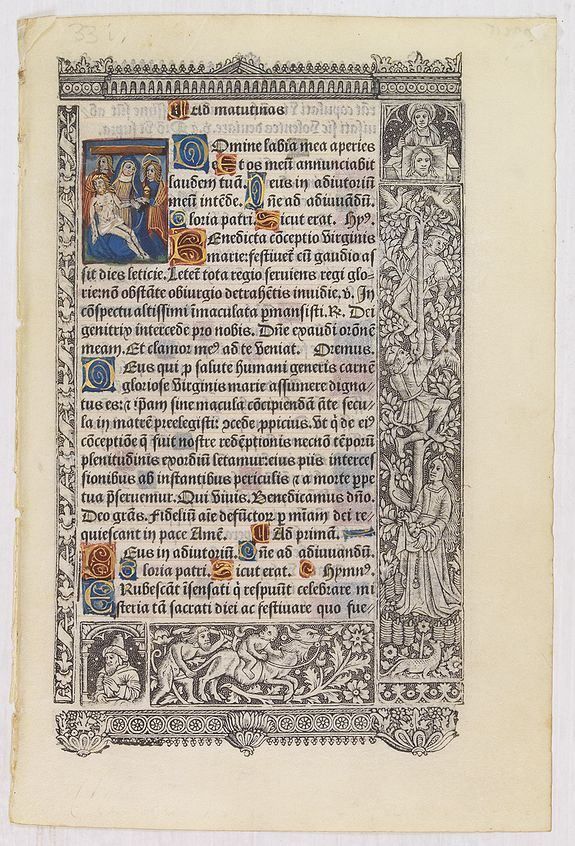 33 i,
Ad matutinas
Domine labia mea aperies
Et os meū annunciabit
laudem tuā. Deus in adiutoriū
meū intēde. Dn̄e ad adiuuandū.
Gloria patri. Sicut erat. Hyꝰ.
Benedicta cōceptio virginis
marie: festiuet cū gaudio as
sit dies leticie. Letet̄ tota regio seruiens regi glo-
rie: nō obstāte obiurgio detrahētis inuidie. v̄. In
cōspectu altissimi īmaculata ꝑmansisti. R̄. Dei
genitrix intercede pro nobis. Dn̄e exaudi orōnē
meam. Et clamor meꝰ ad te veniat. Oremus.
Deus qui ꝓ salute humani generis carnē
gloriose virginis marie assumere digna-
tus es: ⁊ ip̄am sine macula cōcipiendā āte secu-
la in matrē preelegisti: ꝯcede ꝓpicius. vt q̄ de eiꝰ
cōceptiōe q̄ fuit nostre redēptionis necnō tēporū
plenitudinis exordiū letamur: eius piis interces
sionibus ab instantibus periculis ⁊ a morte ꝑpe
tua p̄seruemur. Qui viuis. Benedicamus dn̄o.
Deo grās. Fideliū aīe defūctoꝝ ꝑ mīam dei re-
quiescant in pace Amē. Ad primā.
Deus in adiutoriū. Dn̄e ad adiuuandū.
Gloria patri. Sicut erat. Hymnꝰ.
Erubescāt īsensati q̄ respuūt celebrare mi
steria tā sacrati diei ac festiuare quo fue-